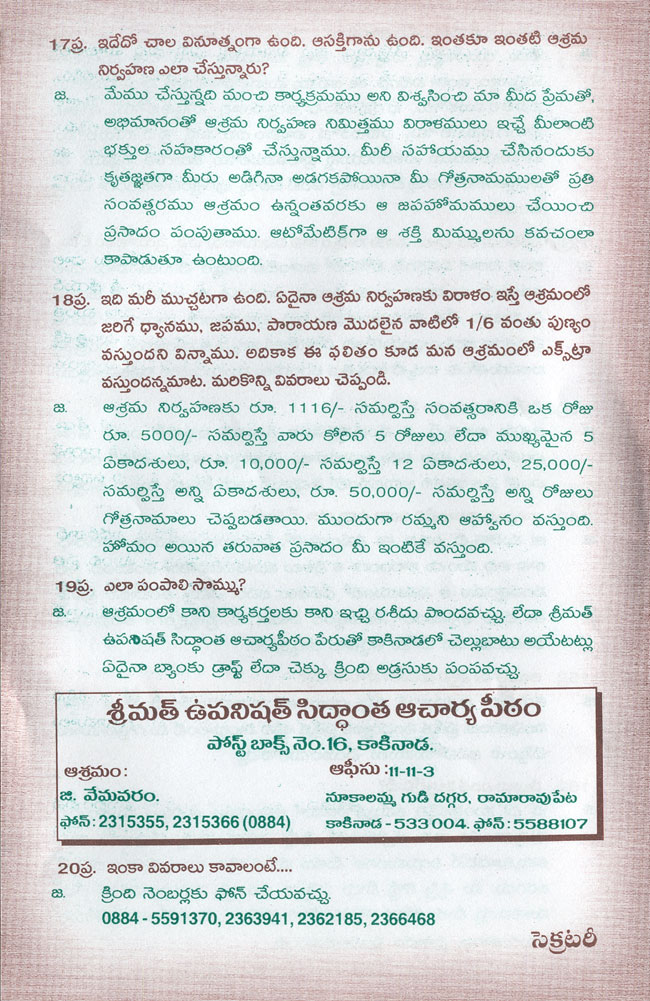 17ప్ర. ఇదేదో చాల వినూత్నంగా ఉంది. ఆసక్తిగాను ఉంది. ఇంతకూ ఇంతటి ఆశ్రమ
నిర్వహణ ఎలా చేస్తున్నారు?
జ. మేము చేస్తున్నది మంచి కార్యక్రమము అని విశ్వసించి మా మీద ప్రేమతో,
అభిమానంతో ఆశ్రమ నిర్వహణ నిమిత్తము విరాళములు ఇచ్చే మీలాంటి
భక్తుల సహకారంతో చేస్తున్నాము. మీరీ సహాయము చేసినందుకు
కృతజ్ఞతగా మీరు అడిగినా అడగకపోయినా మీ గోత్రనామములతో ప్రతి
సంవత్సరము ఆశ్రమం ఉన్నంతవరకు ఆ జపహోమములు చేయించి
ప్రసాదం పంపుతాము. ఆటోమేటిక్‌గా ఆ శక్తి మిమ్ములను కవచంలా
కాపాడుతూ ఉంటుంది.
18ప్ర. ఇది మరీ ముచ్చటగా ఉంది. ఏదైనా ఆశ్రమ నిర్వహణకు విరాళం ఇస్తే ఆశ్రమంలో
జరిగే ధ్యానము, జపము, పారాయణ మొదలైన వాటిలో 1/6 వంతు పుణ్యం
వస్తుందని విన్నాము. అదికాక ఈ ఫలితం కూడ మన ఆశ్రమంలో ఎక్స్‌ట్రా
వస్తుందన్నమాట. మరికొన్ని వివరాలు చెప్పండి.
జ. ఆశ్రమ నిర్వహణకు రూ. 1116/- సమర్పిస్తే సంవత్సరానికి ఒక రోజు
రూ. 5000/- సమర్పిస్తే వారు కోరిన 5 రోజులు లేదా ముఖ్యమైన 5
ఏకాదశులు, రూ. 10,000/- సమర్పిస్తే 12 ఏకాదశులు, 25,000/-
సమర్పిస్తే అన్ని ఏకాదశులు, రూ. 50,000/- సమర్పిస్తే అన్ని రోజులు
గోత్రనామాలు చెప్పబడతాయి. ముందుగా రమ్మని ఆహ్వానం వస్తుంది.
హోమం అయిన తరువాత ప్రసాదం మీ ఇంటికే వస్తుంది.
19ప్ర. ఎలా పంపాలి సొమ్ము?
జ. ఆశ్రమంలో కాని కార్యకర్తలకు కాని ఇచ్చి రశీదు పొందవచ్చు. లేదా శ్రీమత్
ఉపనిషత్ సిద్ధాంత ఆచార్యపీఠం పేరుతో కాకినాడలో చెల్లుబాటు అయేటట్లు
ఏదైనా బ్యాంకు డ్రాఫ్ట్ లేదా చెక్కు క్రింది అడ్రసుకు పంపవచ్చు.
శ్రీమత్ ఉపనిషత్ సిద్ధాంత ఆచార్య పీఠం
పోస్ట్ బాక్స్ నెం.16, కాకినాడ.
ఆశ్రమం : ఆఫీసు : 11-11-3
జి. వేమవరం. నూకాలమ్మ గుడి దగ్గర, రామారావుపేట
ఫోన్ : 2315355, 2315366 (0884) కాకినాడ - 533 004. ఫోన్ : 5588107
20ప్ర. ఇంకా వివరాలు కావాలంటే....
జ. క్రింది నెంబర్లకు ఫోన్ చేయవచ్చు.
0884 - 5591370, 2363941, 2362185, 2366468
సెక్రటరీ